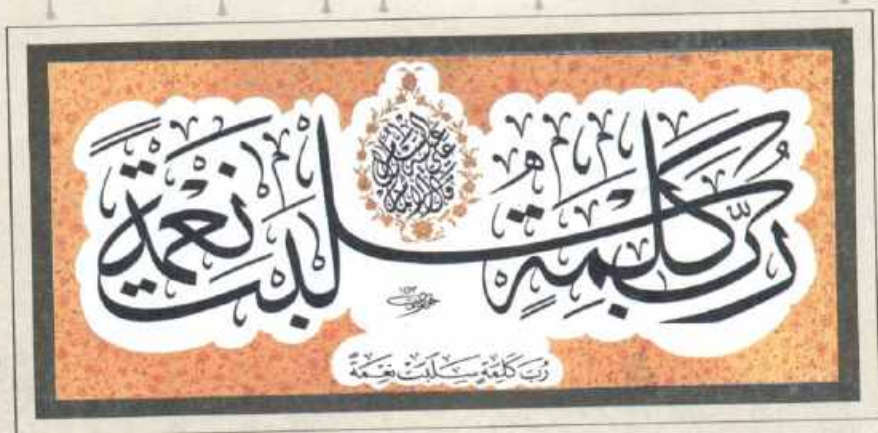 قال الإمام علي عليه السلام
رُبَّ كَلِمَةٍ سَلَبَتْ نِعْمَةً
رُبَّ كَلِمَةٍ سَلَبَتْ نِعْمَةً